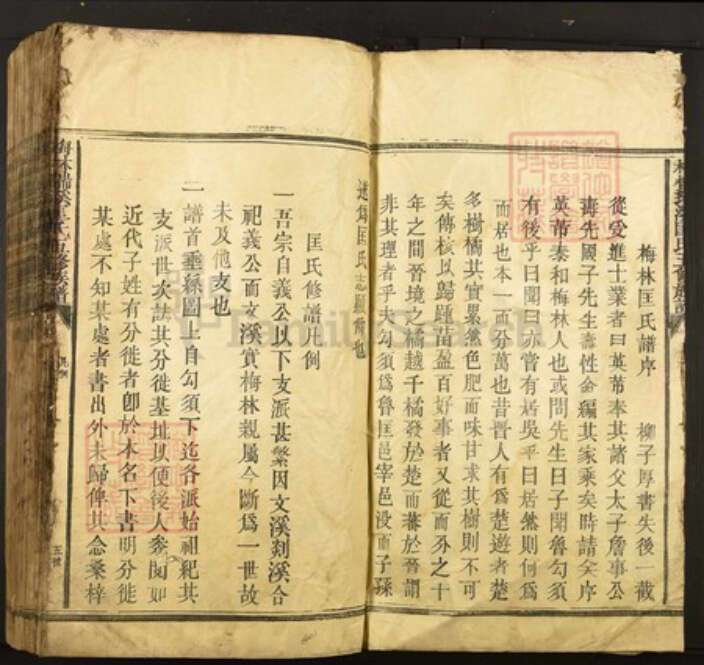 梅林匡氏譜序 柳子厚書失後一截
從受進士業者曰英芾奉其諸父太子詹事公
壽先國子先生壽性命編其家乘矣時請矣序
英芾泰和梅林人也或問先生曰子聞魯勾須
有後乎曰聞曰亦嘗有居吳乎曰居然則何為
而居也本一而分萬也昔晉人有為楚遊者楚
多樹橘其實纍然色肥而味甘求其樹則不可
矣傳核以歸踵苗盈百好事者又從而分之十
年之間晉境之橘越千橘發於楚而蕃於晉謂
非其理者乎夫勾須為魯匡邑宰邑没而子孫
述為匡氏志願脩也
匡氏修譜凡例
一吾宗自義公以下支派甚繁因文溪剡溪合
祀義公而文溪實梅林親屬今斷為一世故
未及他支也
一譜首垂絲圖上自勾須下迄各派始祖紀其
支派世次誌其分徙基址以便後人參閱如
近代子姓有分徙者卽於本名下書明分徙
某處不知某處者書出外未歸俾其念桑梓
五號
FamilySearch